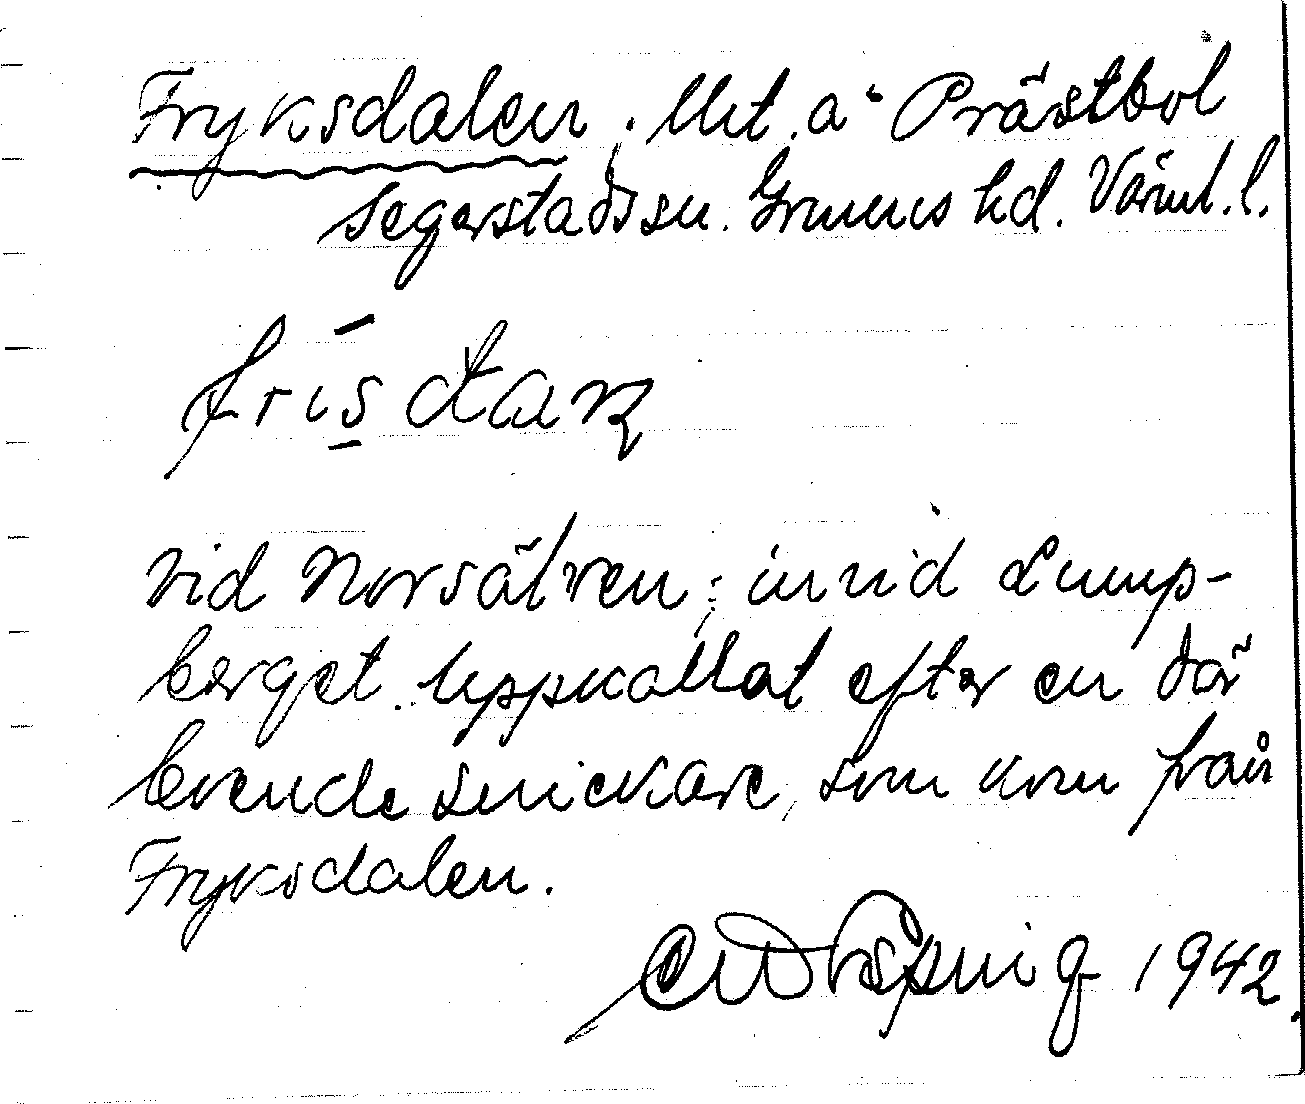 Fryksdalen. Utl. å Prästbol
Segerstads sn. Grums hd. Värml. l.
frísdaɳ
vid Norsälven, invid Lump-
berget. Uppkallat efter en där
boende snickare, som kom från
Fryksdalen.
1942.